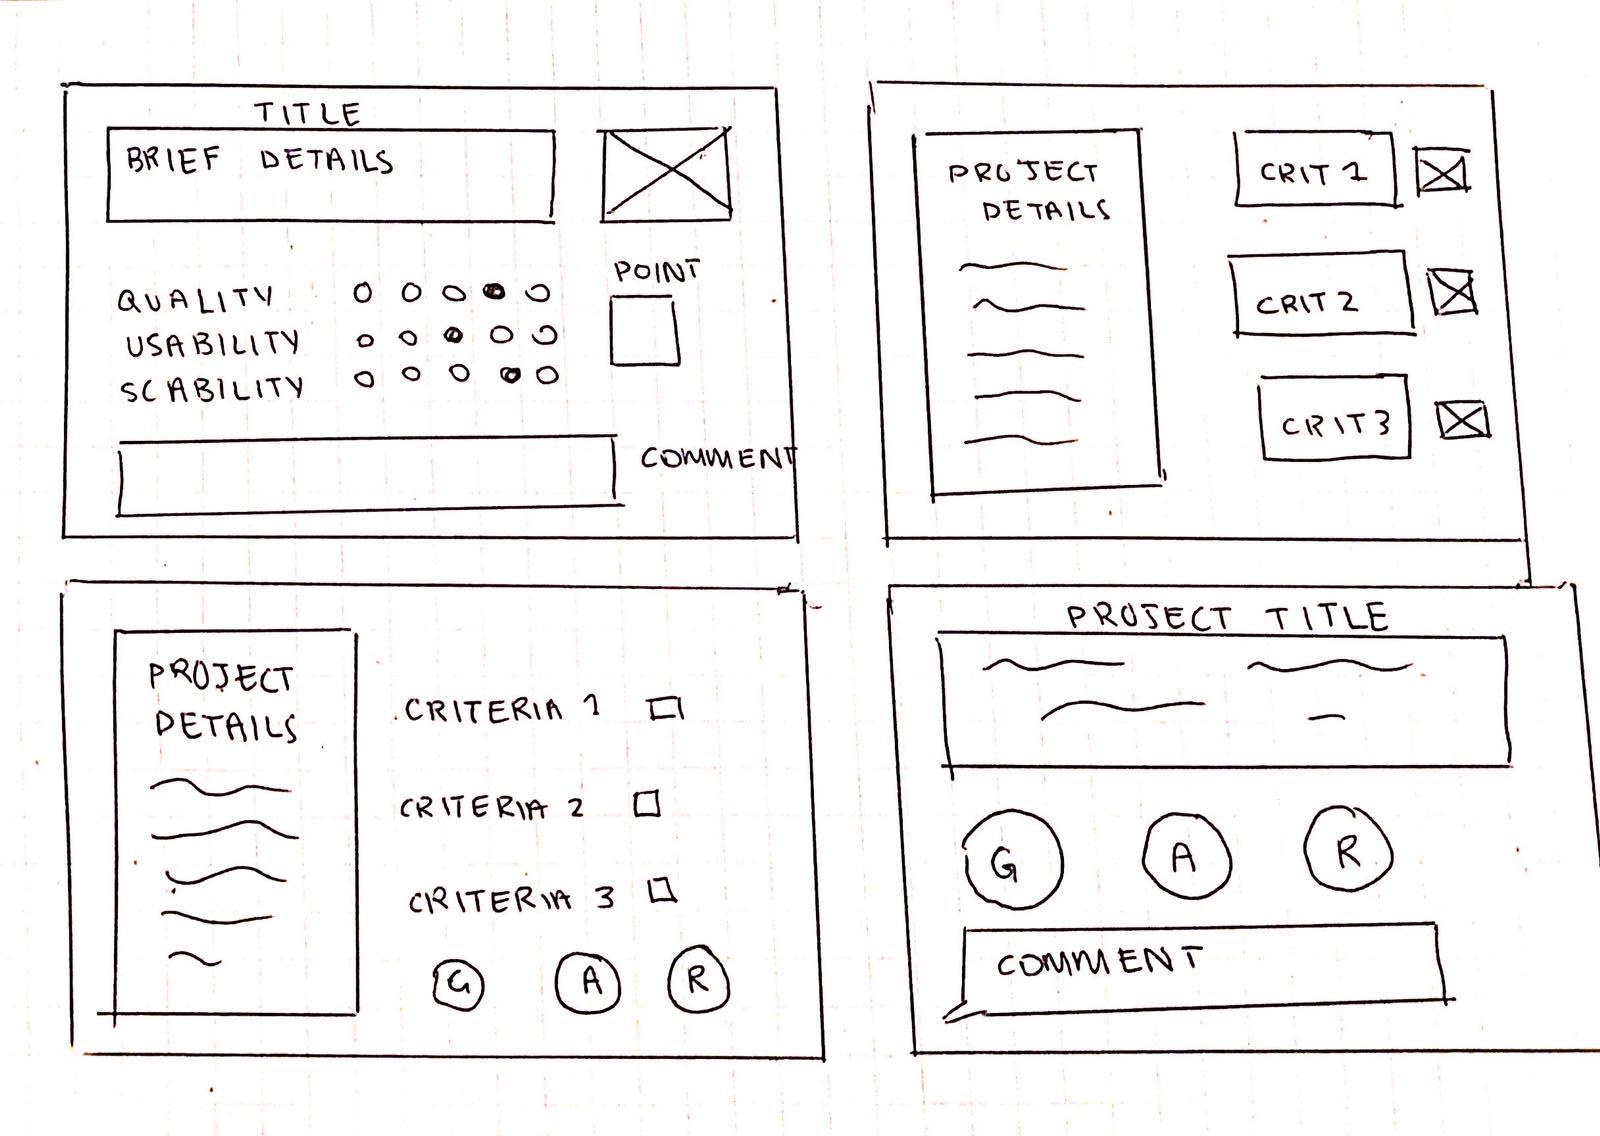 TITLE
BRIEF DETAILS
POINT
QUALITY
USABILITY
SCABILITY
COMMENT
PROJECT
DETAILS
CRIT 1
CRIT 2
CRIT 3
PROJECT
DETAILS
CRITERIA 1
CRITERIA 2
CRITERIA 3
G A R
PROJECT TITLE
G A R
COMMENT